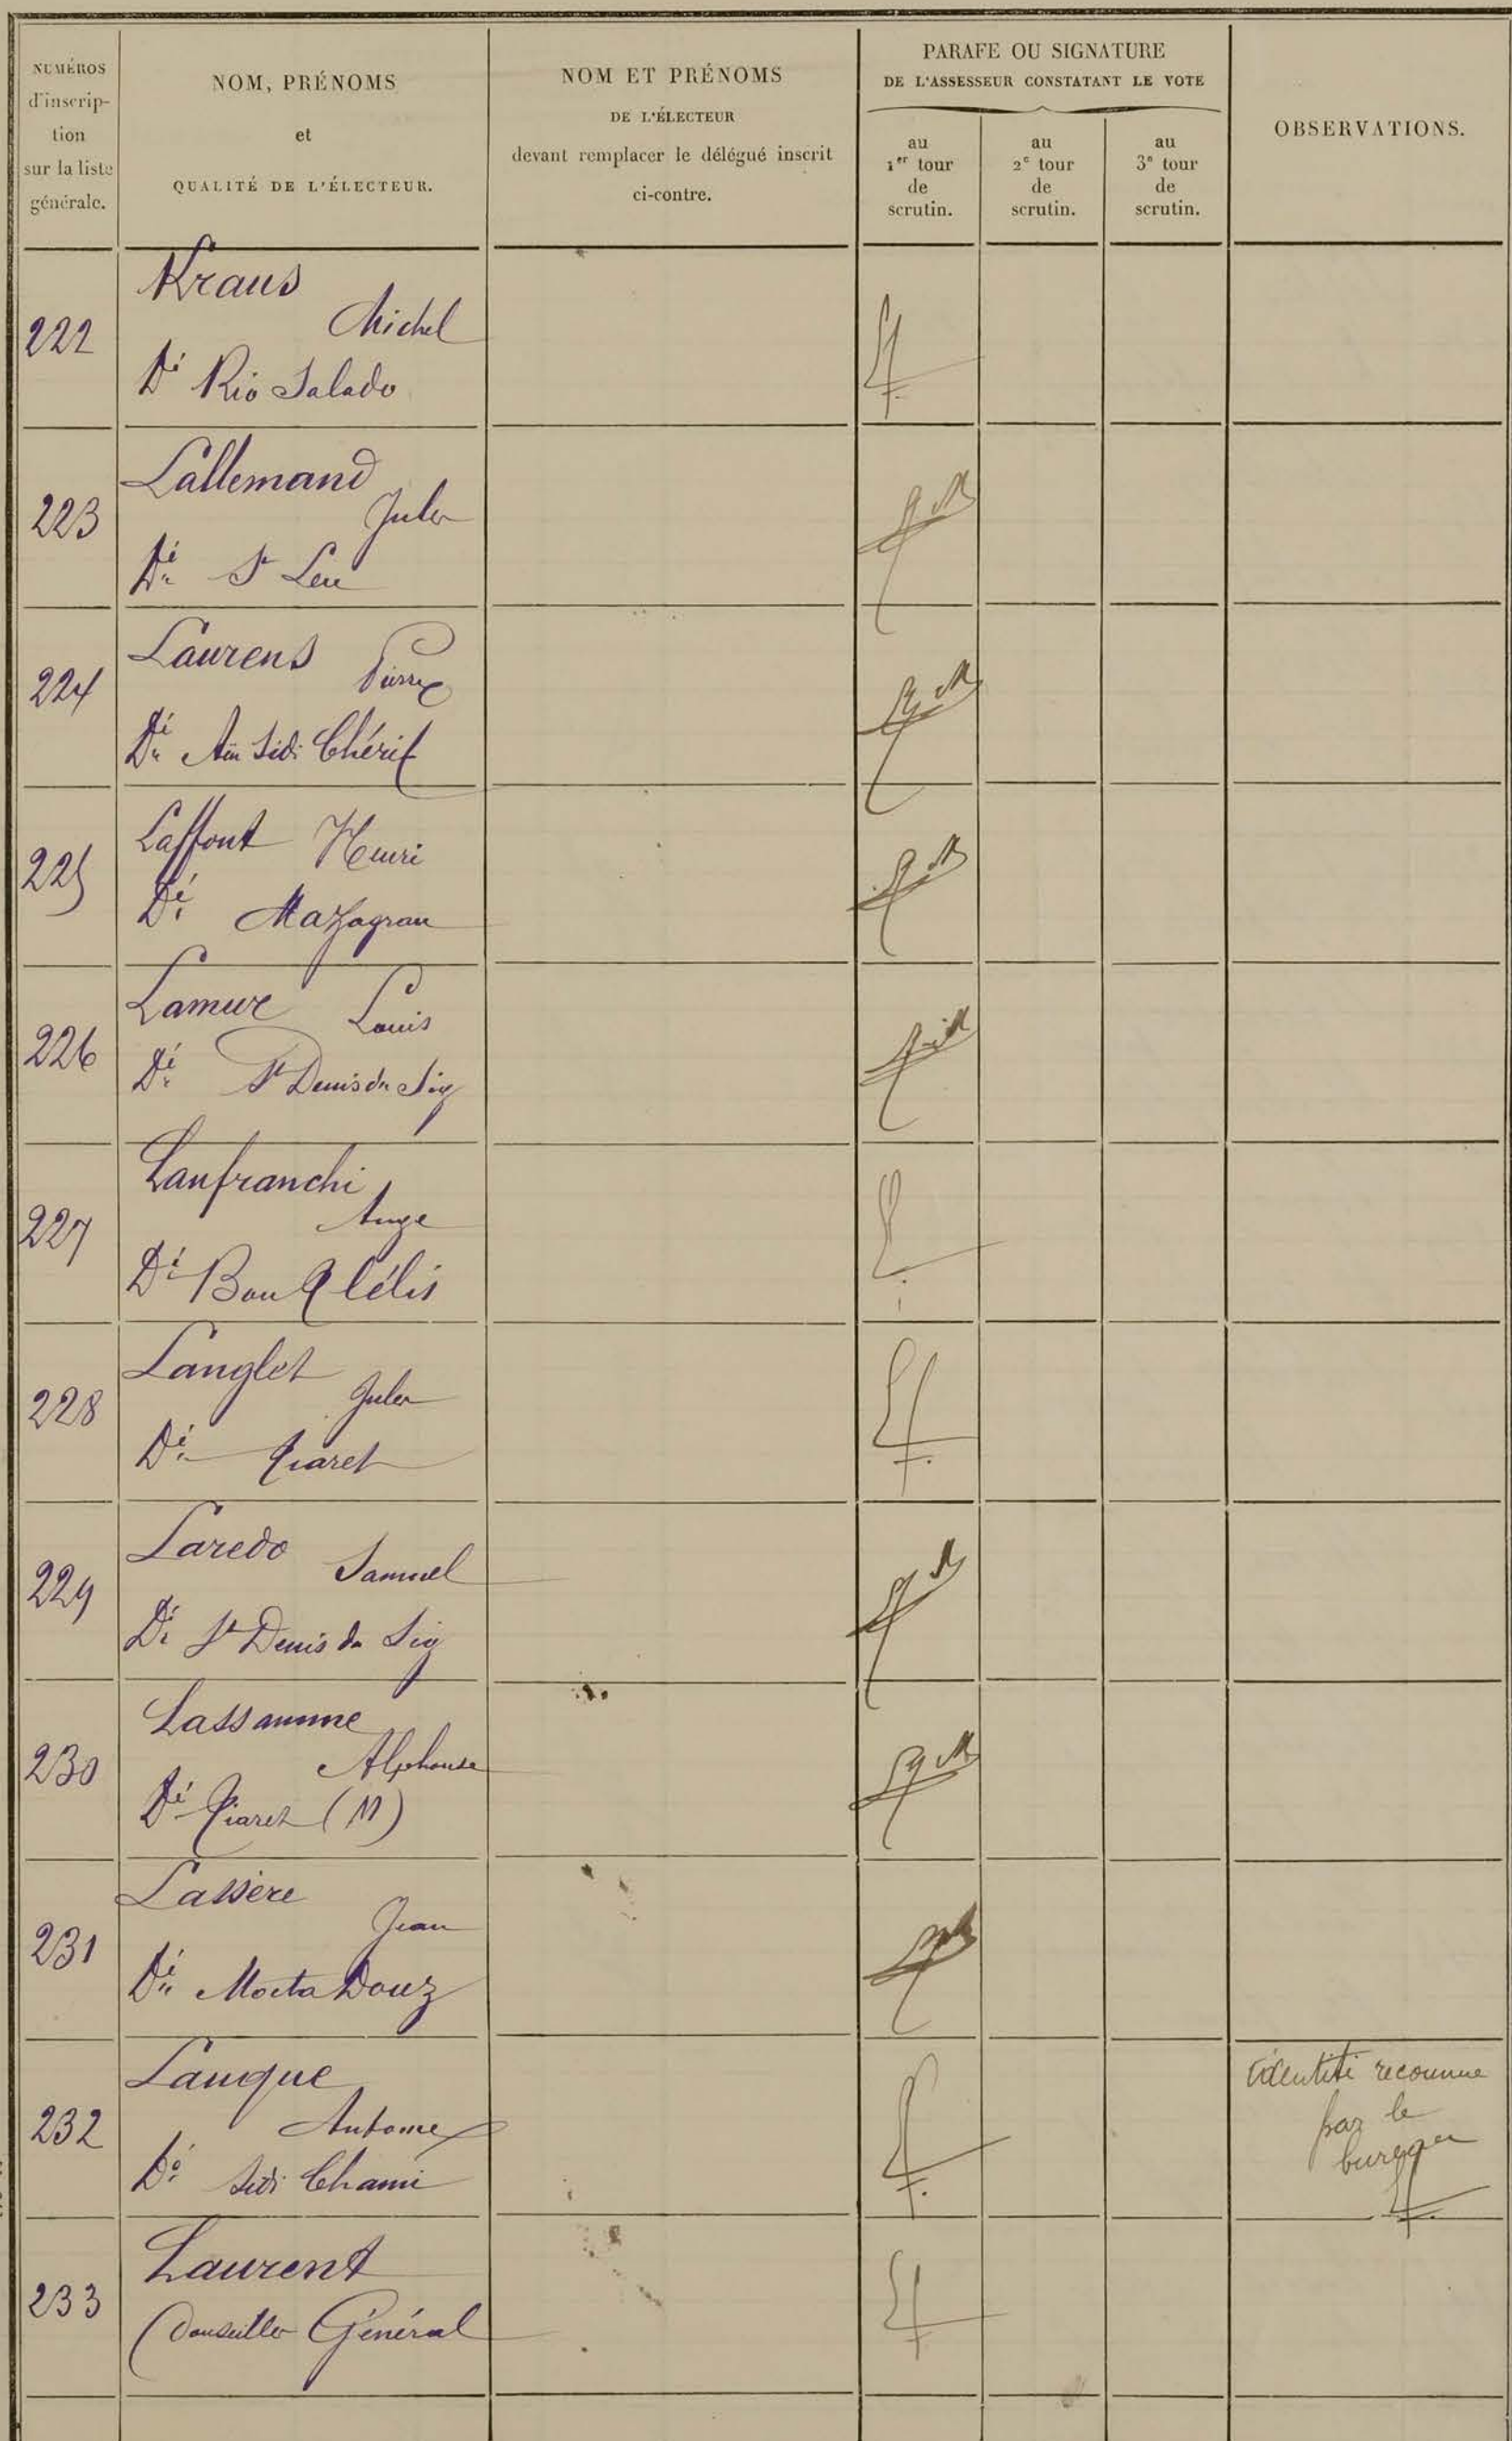 NUMÉROS
d'inscrip-
tion
sur la liste
générale.
NOM, PRÉNOMS
et
QUALITÉ DE L'ÉLECTEUR.
NOM ET PRÉNOMS
DE L'ÉLECTEUR
devant remplacer le délégué inscrit
ci-contre.
PARAFE OU SIGNATURE
DE L'ASSESSEUR CONSTATANT LE VOTE
au
1er tour
de
scrutin.
au
2e tour
de
scrutin.
au
3e tour
de
scrutin.
OBSERVATIONS.
222
Kraus
Michel
Dé Rio Salado
223
Lallemand
Jules
Dé St Leu
224
Laurens Pierre
Dé Aïn Sidi Chérif
225
Laffont Henri
Dé Mazagran
226
Lamur Louis
Dé St Denis du Sig
227
Lanfranchi
Ange
Dé Bou Tlélis
228
Langlet
Jules
Dé Tiaret
229
Laredo Samuel
Dé St Denis du Sig
230
Lassaunne
Alphonse
Dé Tiaret (M)
231
Lassère
Jean
Dé Mocta Douz
232
Lauque
Antoine
Dé Sidi Chami
identité reconnue
par le
bureau
233
Laurent
Conseiller Général